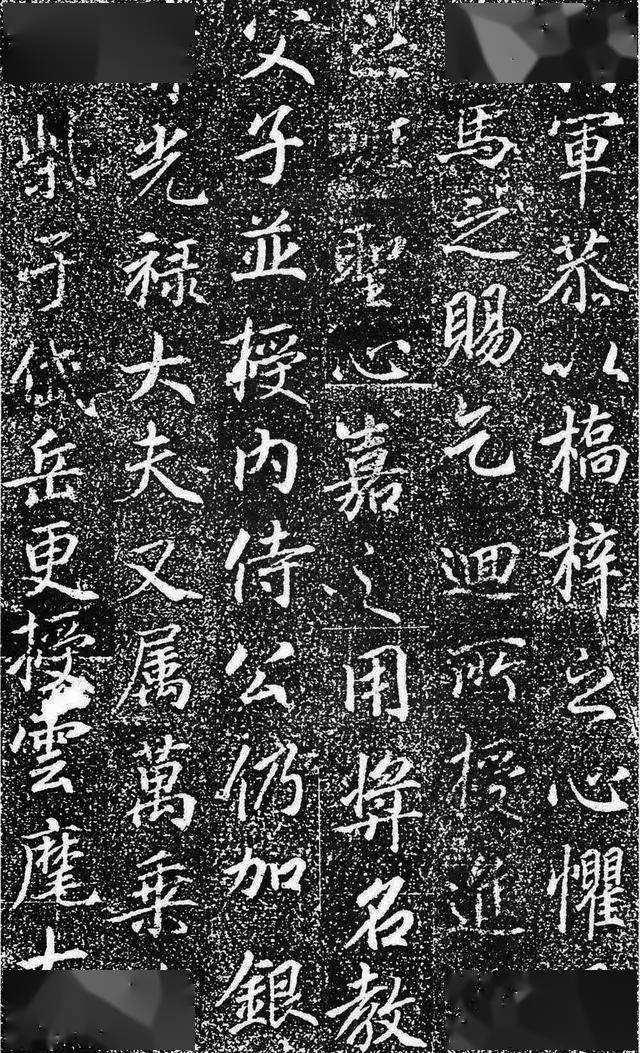 軍恭以槁梓之心懼
馬之賜乞迴所授進
聖心嘉之用奬名教
父子並授内侍公仍加銀
光禄大夫又属萬乗
柴于岱岳更授雲麾大